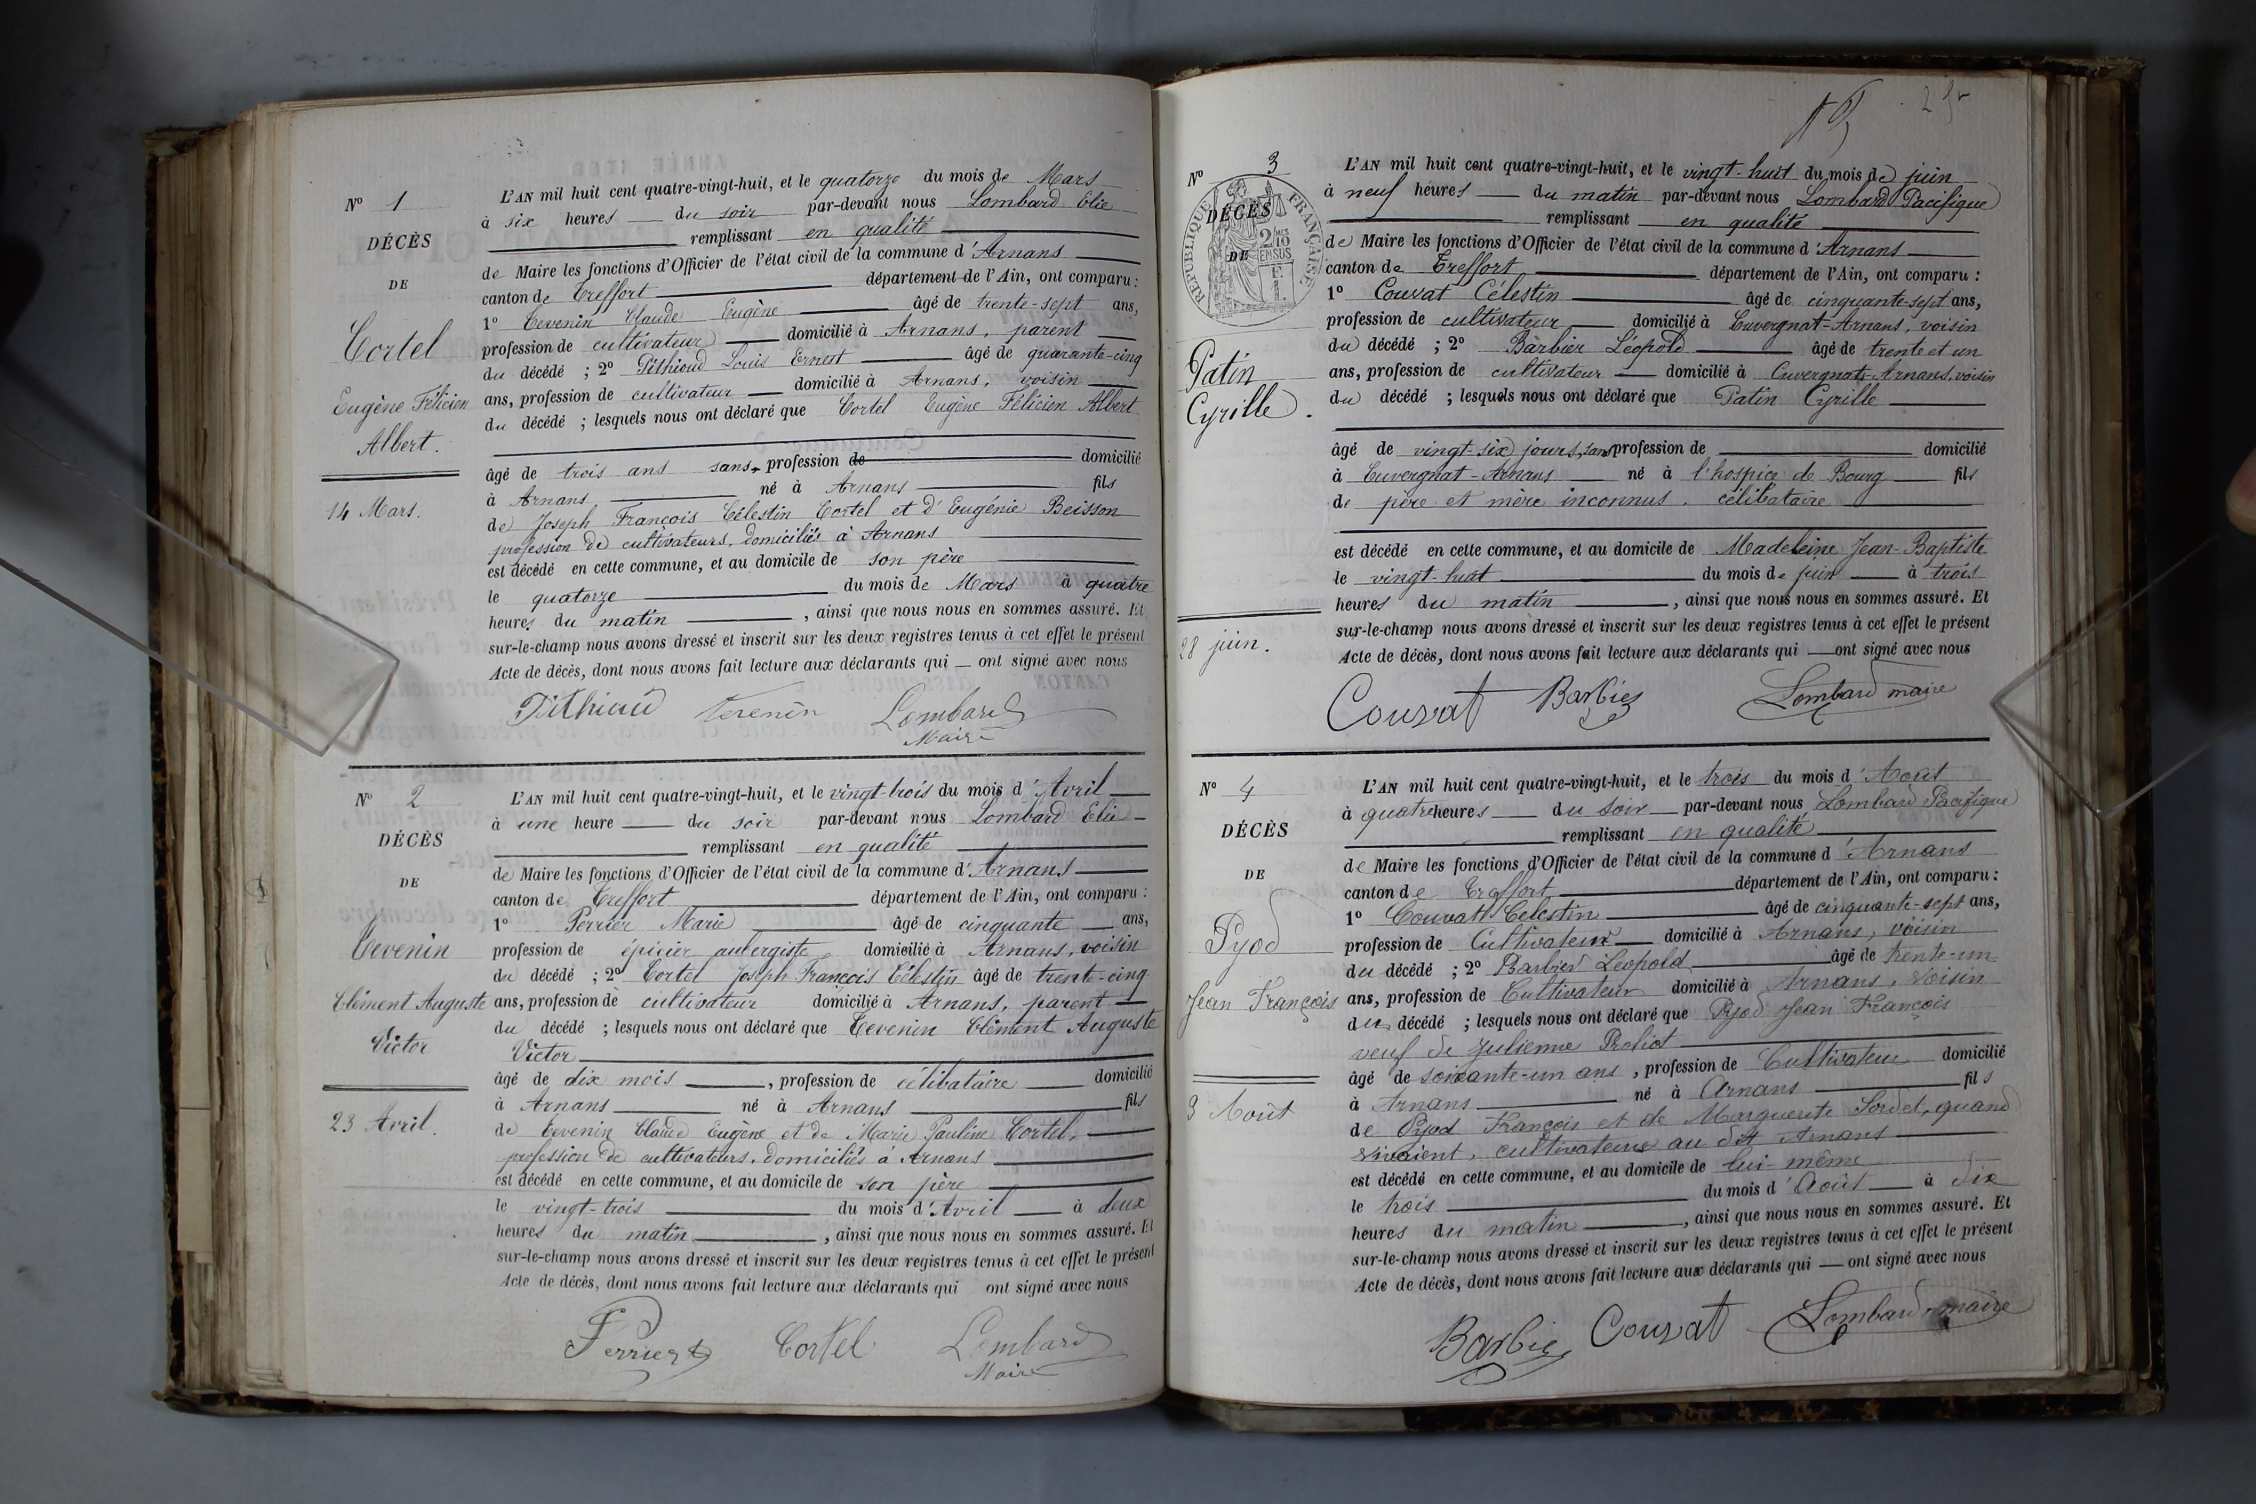 N° 1
DÉCÈS
DE
Cortel
Eugène Félicien
Albert.
14 Mars.
L'AN mil huit cent quatre-vingt-huit, et le quatorze du mois de Mars
à six heures du soir par-devant nous Lombard Elie
remplissant en qualité
de Maire les fonctions d'Officier de l'état civil de la commune d'Arnans
canton de Treffort département de l'Ain, ont comparu :
1° Tevenin Claude Eugène âgé de trente-sept ans,
profession de cultivateur domicilié à Arnans, parent
du décédé ; 2° Pithioud Louis Ernest âgé de quarante-cinq
ans, profession de cultivateur domicilié à Arnans, voisin
du décédé ; lesquels nous ont déclaré que Cortel Eugène Félicien Albert
âgé de trois ans sans profession de domicilié
à Arnans né à Arnans fils
de Joseph François Célestin Cortel et d'Eugénie Beisson
profession de cultivateurs, domiciliés à Arnans
est décédé en cette commune, et au domicile de son père
le quatorze du mois de Mars à quatre
heures du matin , ainsi que nous nous en sommes assuré. Et
sur-le-champ nous avons dressé et inscrit sur les deux registres tenus à cet effet le présent
Acte de décès, dont nous avons fait lecture aux déclarants qui — ont signé avec nous
Pithioud Tevenin Lombard
Maire
N° 2
DÉCÈS
DE
Tevenin
Clément Auguste
Victor
23 Avril.
L'AN mil huit cent quatre-vingt-huit, et le vingt-trois du mois d'Avril
à une heure du soir par-devant nous Lombard Elie
remplissant en qualité
de Maire les fonctions d'Officier de l'état civil de la commune d'Arnans
canton de Treffort département de l'Ain, ont comparu :
1° Perrier Marie âgé de cinquante ans,
profession de épicier aubergiste domicilié à Arnans, voisin
du décédé ; 2° Cortel Joseph François Célestin âgé de trente-cinq
ans, profession de cultivateur domicilié à Arnans, parent
du décédé ; lesquels nous ont déclaré que Tevenin Clément Auguste
Victor
âgé de dix mois , profession de célibataire domicilié
à Arnans né à Arnans fils
de Tevenin Claude Eugène et de Marie Pauline Cortel,
profession de cultivateurs, domiciliés à Arnans
est décédé en cette commune, et au domicile de son père
le vingt-trois du mois d'Avril à deux
heures du matin , ainsi que nous nous en sommes assuré. Et
sur-le-champ nous avons dressé et inscrit sur les deux registres tenus à cet effet le présent
Acte de décès, dont nous avons fait lecture aux déclarants qui ont signé avec nous
Perrier Cortel Lombard
Maire
N° 3
DÉCÈS
DE
RÉPUBLIQUE FRANÇAISE
2/10 EN SUS
Patin
Cyrille.
28 juin.
L'AN mil huit cent quatre-vingt-huit, et le vingt-huit du mois de juin
à neuf heures du matin par-devant nous Lombard Pacifique
remplissant en qualité
de Maire les fonctions d'Officier de l'état civil de la commune d'Arnans
canton de Treffort département de l'Ain, ont comparu :
1° Couvat Célestin âgé de cinquante-sept ans,
profession de cultivateur domicilié à Cuvergnat-Arnans, voisin
du décédé ; 2° Barbier Léopold âgé de trente et un
ans, profession de cultivateur domicilié à Cuvergnat-Arnans, voisin
du décédé ; lesquels nous ont déclaré que Patin Cyrille
âgé de vingt-six jours, sans profession de domicilié
à Cuvergnat-Arnans né à l'hospice de Bourg fils
de père et mère inconnus, célibataire
est décédé en cette commune, et au domicile de Madeleine Jean-Baptiste
le vingt-huit du mois de juin à trois
heures du matin , ainsi que nous nous en sommes assuré. Et
sur-le-champ nous avons dressé et inscrit sur les deux registres tenus à cet effet le présent
Acte de décès, dont nous avons fait lecture aux déclarants qui — ont signé avec nous
Couvat Barbier Lombard maire
N° 4
DÉCÈS
DE
Pyod
Jean François
3 Août
L'AN mil huit cent quatre-vingt-huit, et le trois du mois d'Août
à quatre heures du soir par-devant nous Lombard Pacifique
remplissant en qualité
de Maire les fonctions d'Officier de l'état civil de la commune d'Arnans
canton de Treffort département de l'Ain, ont comparu :
1° Couvatt Célestin âgé de cinquante-sept ans,
profession de Cultivateur domicilié à Arnans, voisin
du décédé ; 2° Barbier Léopold âgé de trente-un
ans, profession de Cultivateur domicilié à Arnans, voisin
du décédé ; lesquels nous ont déclaré que Pyod Jean François
veuf de Julienne Proliot
âgé de soixante-un ans , profession de Cultivateur domicilié
à Arnans né à Arnans fils
de Pyod François et de Marguerite Sordet, quand
vivaient, cultivateurs au dit Arnans
est décédé en cette commune, et au domicile de lui-même
le trois du mois d'Août à dix
heures du matin , ainsi que nous nous en sommes assuré. Et
sur-le-champ nous avons dressé et inscrit sur les deux registres tenus à cet effet le présent
Acte de décès, dont nous avons fait lecture aux déclarants qui — ont signé avec nous
Barbier Couvat Lombard maire